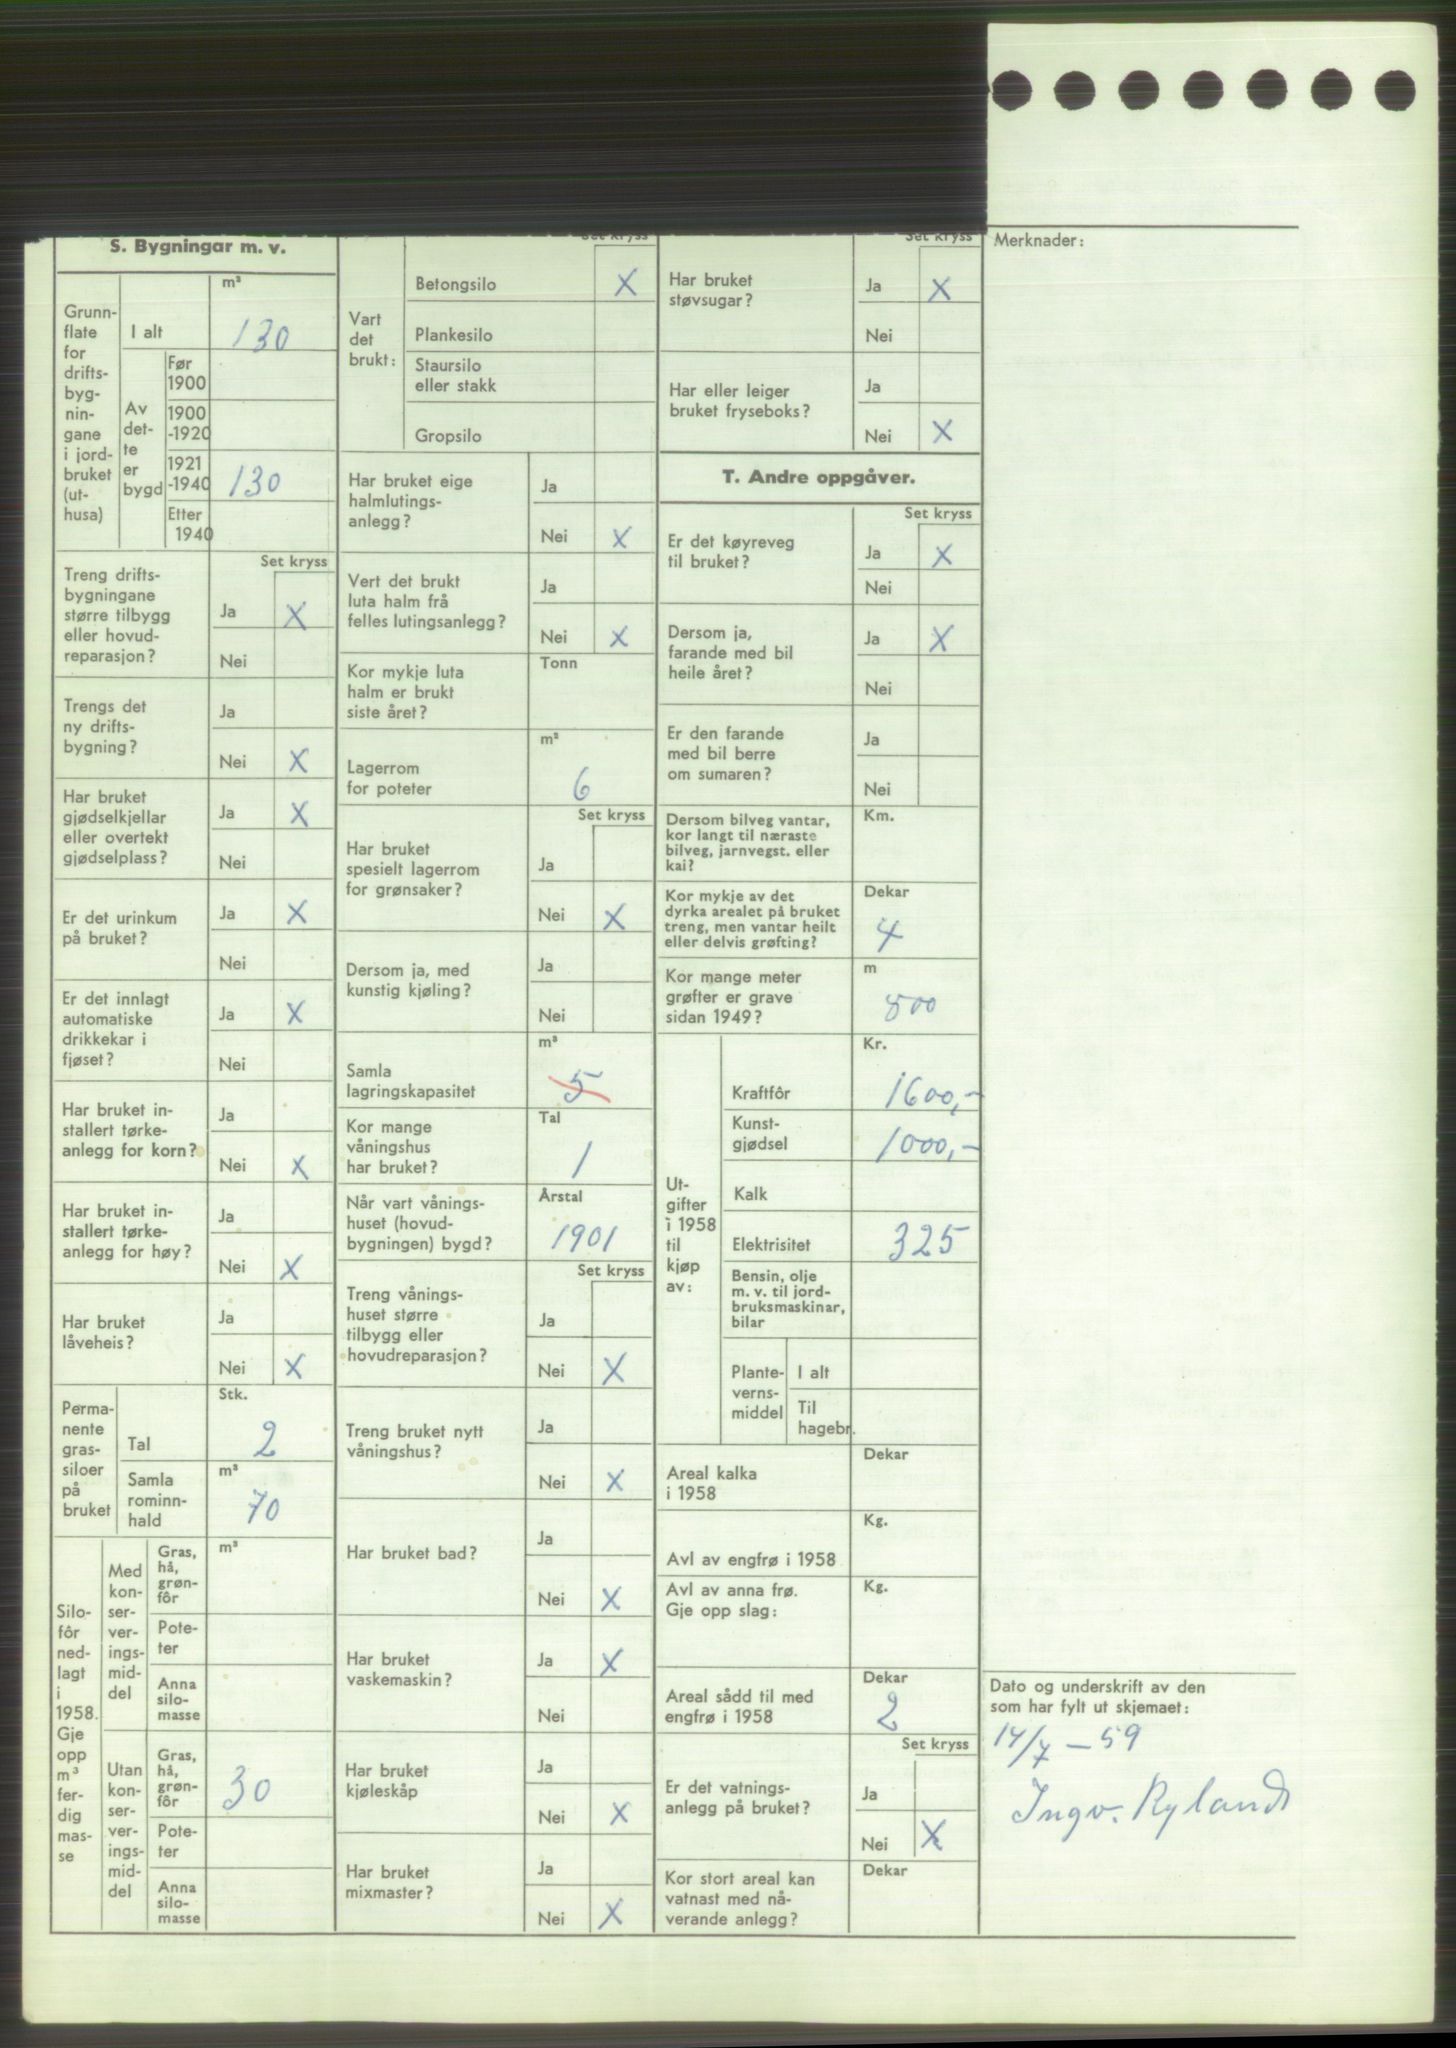 S. Bygningar m. v.
Grunn-
flate
for
drifts-
byg-
nin-
gane
i jord-
bruket
(ut-
husa)
m²
I alt 130
Av
det-
te
er
bygd
Før
1900
1900
-1920
1921
-1940 130
Etter
1940
Set kryss
Treng drifts-
bygningane
større tilbygg
eller hovud-
reparasjon?
Ja X
Nei
Trengs det
ny drifts-
bygning?
Ja
Nei X
Har bruket
gjødselkjellar
eller overtekt
gjødselplass?
Ja X
Nei
Er det urinkum
på bruket?
Ja X
Nei
Er det innlagt
automatiske
drikkekar i
fjøset?
Ja X
Nei
Har bruket in-
stallert tørke-
anlegg for korn?
Ja
Nei X
Har bruket in-
stallert tørke-
anlegg for høy?
Ja
Nei X
Har bruket
låveheis?
Ja
Nei X
Perma-
nente
gras-
siloer
på
bruket
Stk.
Tal 2
m³
Samla
rominn-
hald 70
Silo-
fôr
ned-
lagt
i
1958.
Gje
opp
m³
fer-
dig
mas-
se
Med
kon-
ser-
ver-
ings-
mid-
del
m³
Gras,
hå,
grøn-
fôr
Pote-
ter
Anna
silo-
masse
Utan
kon-
ser-
ver-
ings-
mid-
del
Gras,
hå,
grøn-
fôr 30
Pote-
ter
Anna
silo-
masse
Set kryss
Vart
det
brukt:
Betongsilo X
Plankesilo
Staursilo
eller stakk
Gropsilo
Har bruket eige
halmlutings-
anlegg?
Ja
Nei X
Vert det brukt
luta halm frå
felles lutingsanlegg?
Ja
Nei X
Kor mykje luta
halm er brukt
siste året?
Tonn
Lagerrom
for poteter
m³
6
Set kryss
Har bruket
spesielt lagerrom
for grønsaker?
Ja
Nei X
Dersom ja, med
kunstig kjøling?
Ja
Nei
Samla
lagringskapasitet
m³
5
Kor mange
våningshus
har bruket?
Tal
1
Når vart vånings-
huset (hovud-
bygningen) bygd?
Årstal
1901
Set kryss
Treng vånings-
huset større
tilbygg eller
hovudreparasjon?
Ja
Nei X
Treng bruket nytt
våningshus?
Ja
Nei X
Har bruket bad?
Ja
Nei X
Har bruket
vaskemaskin?
Ja X
Nei
Har bruket
kjøleskåp
Ja
Nei X
Har bruket
mixmaster?
Ja
Nei X
Set kryss
Har bruket
støvsugar?
Ja X
Nei
Har eller leiger
bruket fryseboks?
Ja
Nei X
T. Andre oppgåver.
Set kryss
Er det køyreveg
til bruket?
Ja X
Nei
Dersom ja,
farande med bil
heile året?
Ja X
Nei
Er den farande
med bil berre
om sumaren?
Ja
Nei
Dersom bilveg vantar,
kor langt til næraste
bilveg, jarnvegst. eller
kai?
Km.
Kor mykje av det
dyrka arealet på bruket
treng, men vantar heilt
eller delvis grøfting?
Dekar
4
Kor mange meter
grøfter er grave
sidan 1949?
m
800
Ut-
gifter
i 1958
til
kjøp
av:
Kr.
Kraftfôr 1600,-
Kunst-
gjødsel 1000,-
Kalk
Elektrisitet 325
Bensin, olje
m. v. til jord-
bruksmaskinar,
bilar
Plante-
verns-
middel
I alt
Til
hagebr.
Areal kalka
i 1958
Dekar
Avl av engfrø i 1958
Kg.
Avl av anna frø.
Gje opp slag:
Kg.
Areal sådd til med
engfrø i 1958
Dekar
2
Set kryss
Er det vatnings-
anlegg på bruket?
Ja
Nei X
Kor stort areal kan
vatnast med nå-
verande anlegg?
Dekar
Merknader:
Dato og underskrift av den
som har fylt ut skjemaet:
14/7 – 59
Ingv. Ryland